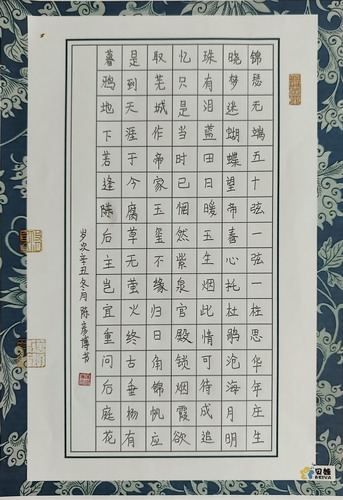 锦瑟无端五十弦一弦一柱思华年庄生
晓梦迷蝴蝶望帝春心托杜鹃沧海月明
珠有泪蓝田日暖玉生烟此情可待成追
忆只是当时已惘然紫泉宫殿锁烟霞欲
取芜城作帝家玉玺不缘归日角锦帆应
是到天涯于今腐草无萤火终古垂杨有
暮鸦地下若逢陈后主岂宜重问后庭花
岁次辛丑冬月 陈彦博书